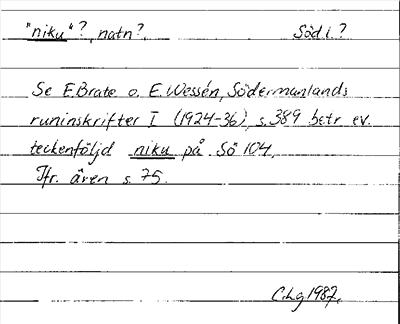 "niku"?, natn?. Söd i.?
Se E. Brate o. E. Wessén, Södermanlands
runinskrifter I (1924-36), s. 389 betr. ev.
teckenföljd niku på Sö 104.
Jfr. även s. 75.
C.Lg 1987.